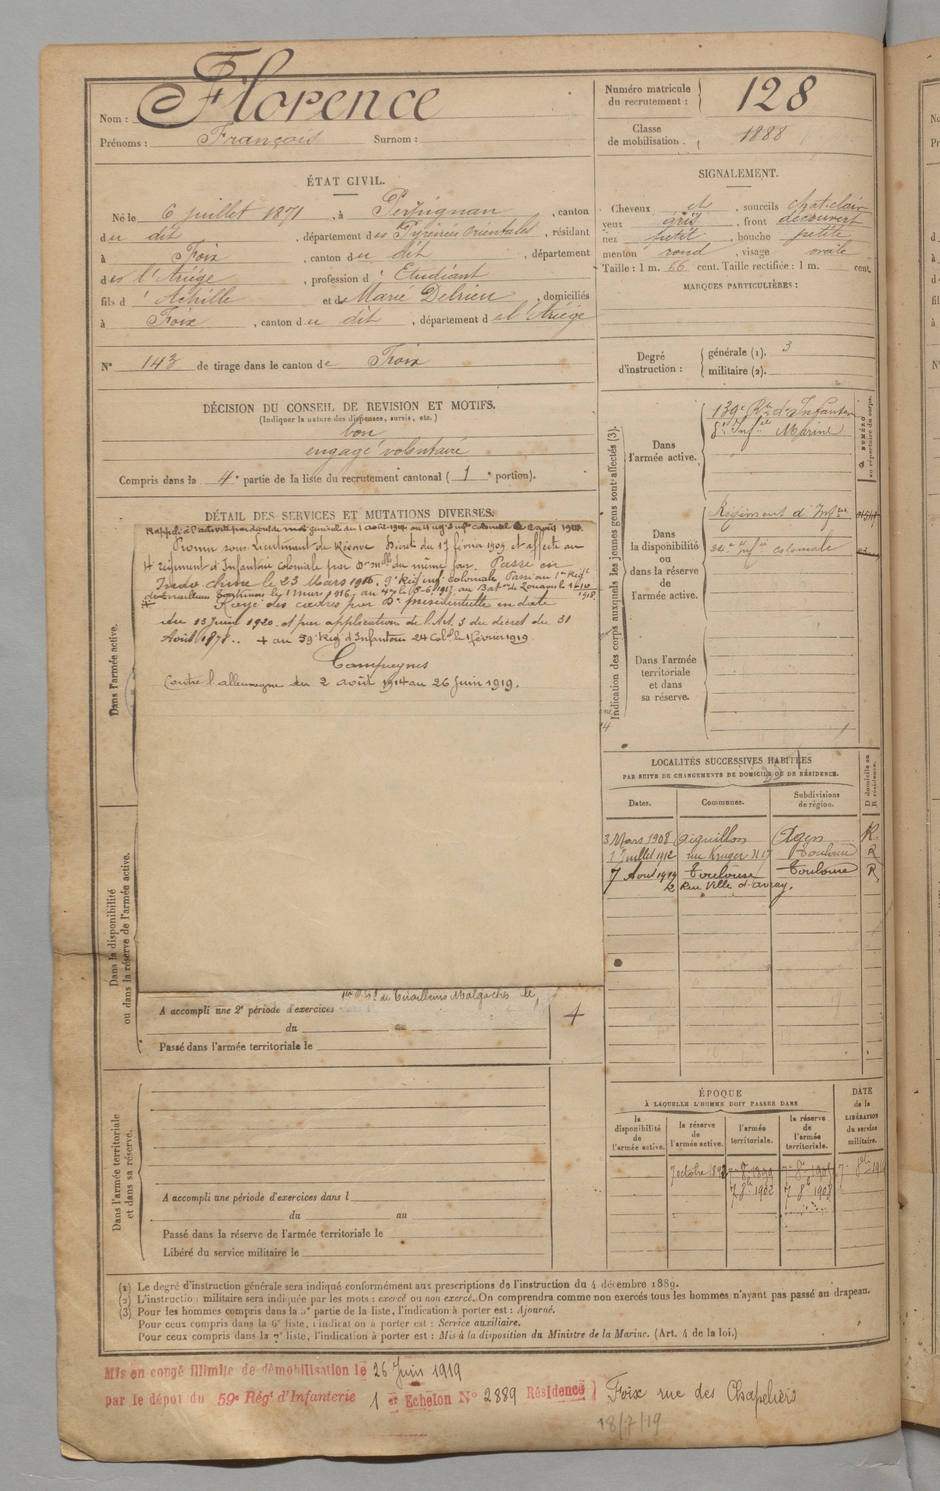 Nom : Florence
Prénoms : François Surnom :
Numéro matricule
du recrutement : 128
Classe
de mobilisation. 1888
ÉTAT CIVIL.
Né le 6 juillet 1871, à Perpignan, canton
du dit, département des Pyrénées Orientales, résidant
à Foix, canton du dit, département
de l'Ariége, profession d'Etudiant
fils d'Achille et de Marie Delrieu, domiciliés
à Foix, canton du dit, département de l'Ariége
N° 143 de tirage dans le canton de Foix
DÉCISION DU CONSEIL DE REVISION ET MOTIFS.
(Indiquer la nature des dispenses, sursis, etc.)
bon
engagé volontaire
Compris dans la 4e partie de la liste du recrutement cantonal ( 1e portion).
SIGNALEMENT.
Cheveux et, sourcils chat. clair
yeux gris, front découvert
nez petit, bouche petite
menton rond, visage ovale
Taille : 1 m. 66 cent. Taille rectifiée : 1 m. cent.
MARQUES PARTICULIÈRES :
Degré
d'instruction :
générale (1). 3
militaire (2).
DÉTAIL DES SERVICES ET MUTATIONS DIVERSES.
Promu sous-Lieutenant de Réserve Décret du 17 février 1909 et affecté au
4e régiment d'Infanterie Coloniale par Don mlle du même jour. Passé en
Indo-chine le 23 Mars 1916. 9e Reg inf. coloniale. Passé au 1er Regt
1 mars 1916
Rayé des cadres par Don présidentielle en date
du 13 Juin 1920 et par application de l'Art. 3 du décret du 31
Août 1878.. + au 59e Reg d'Infanterie 1 février 1919
Campagnes
Contre l'allemagne du 2 août 1914 au 26 Juin 1919.
Dans l'armée active.
Dans la disponibilité
ou dans la réserve de l'armée active.
de Tirailleurs Malgaches le
A accompli une 2e période d'exercices
du au
Passé dans l'armée territoriale le
Dans l'armée territoriale
et dans sa réserve.
A accompli une période d'exercices dans l
du au
Passé dans la réserve de l'armée territoriale le
Libéré du service militaire le
Indication des corps auxquels les jeunes gens sont affectés (3).
NUMÉRO
au répertoire du corps.
Dans
l'armée active.
139e Rt d'Infanterie
8e Infie Marine
Dans
la disponibilité
ou
dans la réserve
de
l'armée active.
Régiment d'Infie
Infie coloniale
Dans l'armée
territoriale
et dans
sa réserve.
LOCALITÉS SUCCESSIVES HABITÉES
PAR SUITE DE CHANGEMENTS DE DOMICILE OU DE RÉSIDENCE.
D domicile ou
R résidence.
Dates. Communes. Subdivisions
de région.
3 Mars 1908 Aiguillon Agen R
1 Juillet 1912 rue Kruger N 17 Toulouse R
7 Aout 1919 Toulouse Toulouse R
2 Rue Ville d'avray.
ÉPOQUE
À LAQUELLE L'HOMME DOIT PASSER DANS
DATE
de la
LIBÉRATION
du service
militaire.
la
disponibilité
de
l'armée active.
la réserve
de
l'armée active.
l'armée
territoriale.
la réserve
de
l'armée
territoriale.
(1) Le degré d'instruction générale sera indiqué conformément aux prescriptions de l'instruction du 4 décembre 1889.
(2) L'instruction militaire sera indiquée par les mots : exercé ou non exercé. On comprendra comme non exercés tous les hommes n'ayant pas passé au drapeau.
(3) Pour les hommes compris dans la 5e partie de la liste, l'indication à porter est : Ajourné.
Pour ceux compris dans la 6e liste, l'indication à porter est : Service auxiliaire.
Pour ceux compris dans la 7e liste, l'indication à porter est : Mis à la disposition du Ministre de la Marine. (Art. 4 de la loi.)
Mis en congé illimité de démobilisation le 26 Juin 1919
par le dépôt du 59e Régt d'Infanterie 1er Echelon N° 2889 Résidence } Foix rue des Chapeliers
18/7/19